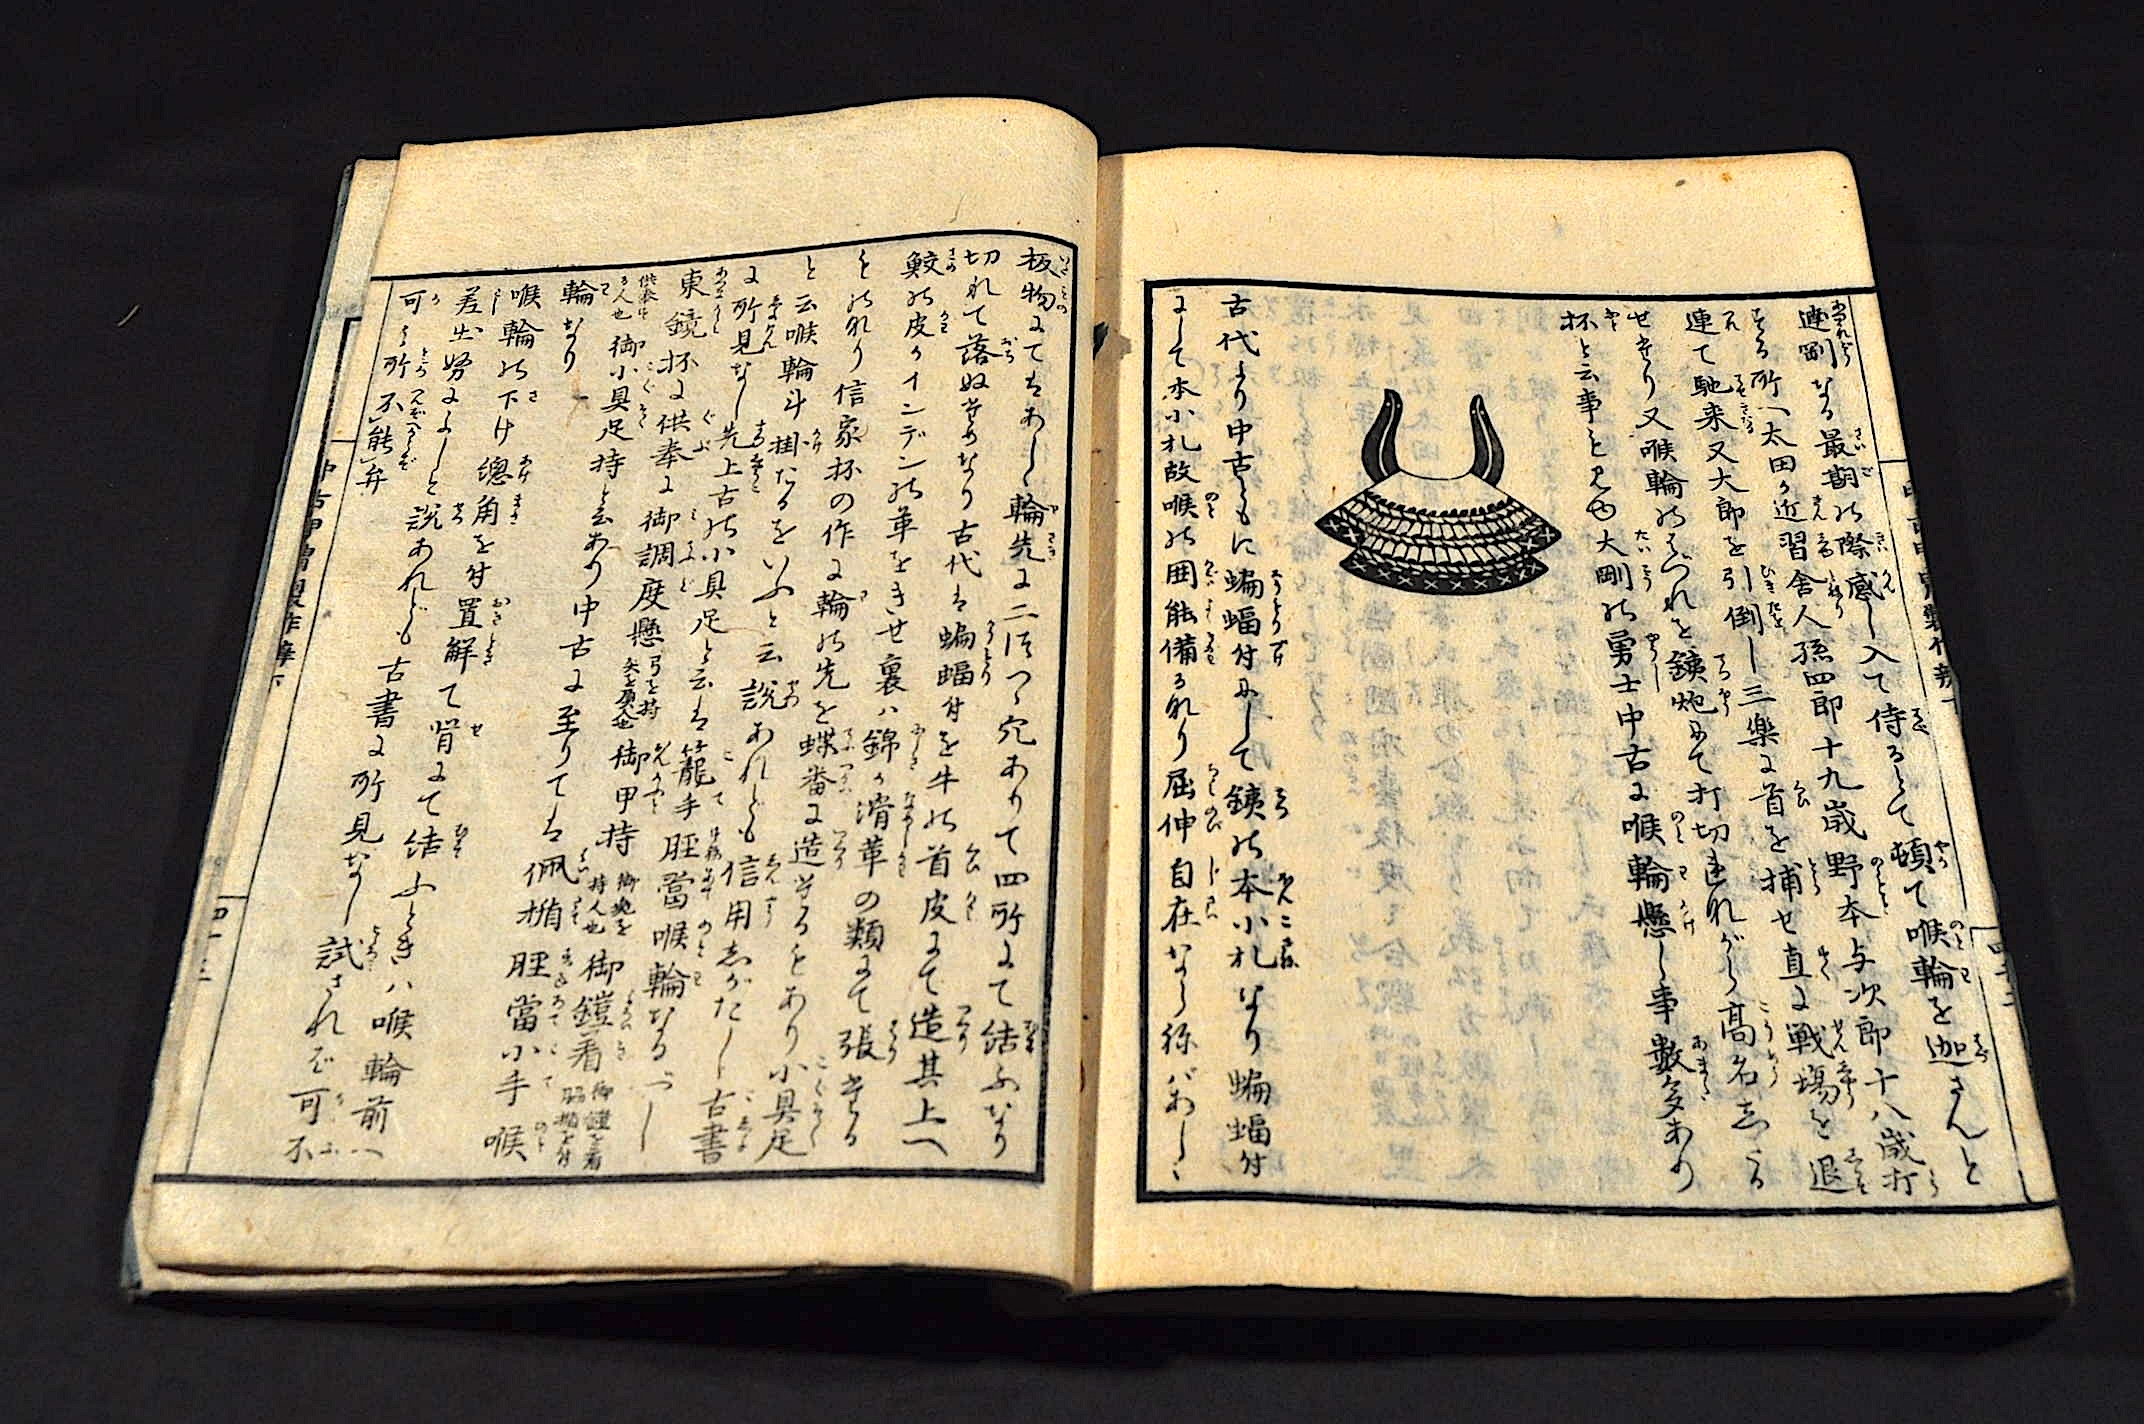 連剛なる最期の際感し入て侍るとて頓て喉輪を迦さんと
する所へ太田が近習舎人孫四郎十九歳野本与次郎十八歳打
連て馳来又大郎を引倒し三樂に首を捕せ直に戦場を退
せけり又喉輪のはづれを銕炮にて打切まれながら高名しるる
杯と云事を見や大剛の勇士中古に喉輪懸し事數多あり
古代より中古ともに蝙蝠付にして銕の本小札なり蝙蝠付
にして本小札故喉の囲能備るなり屈伸自在なら称バあしゝ
板物にてはあしゝ輪先に二ツツゝ穴ありて四所にて結ふなり
切れて落ぬためなり古代は蝙蝠付を牛の首皮にて造其上へ
鮫の皮かインデンの革をきせ裏ハ錦か滑革の類にて張たる
ものなり信家杯の作に輪の先を蝶番に造たるもあり小具足
と云喉輪斗掛たるをいふと云説あれども信用しがたし古書
に所見なし先上古の小具足と云は籠手脛當喉輪なるべし
東鏡杯に供奉に御調度懸弓を持矢を負人也御甲持御甲を持人也御鎧着御鎧を着
供奉する人也御小具足持と云あり中古に至りては佩楯脛當小手喉
輪なり
喉輪の下け總角を付置解て背にて結ふときハ喉輪前へ
差出努によしと説あれども古書に所見なし試されば可不
可之所不能弁
中古甲冑製作辨下
四十三